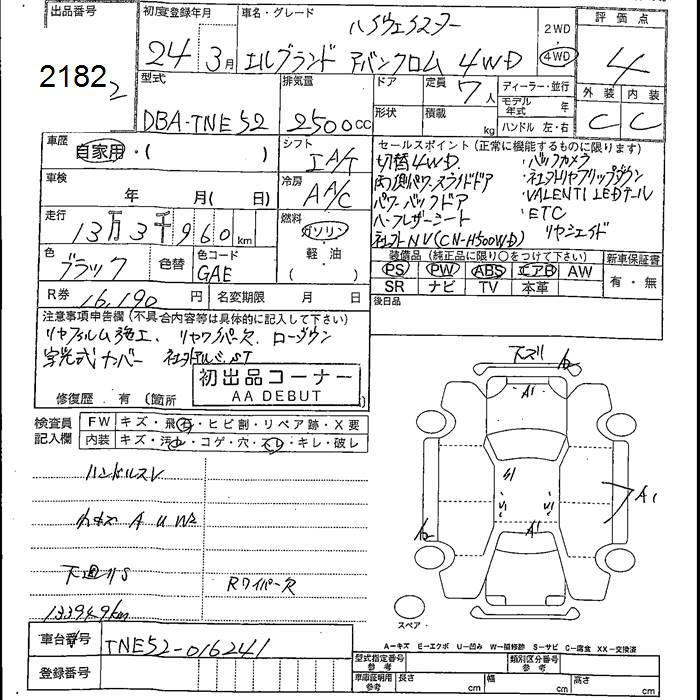 出品番号
2182
初度登録年月
24年 3月
車名・グレード
ハイウェイスター
エルグランド アーバンクロム 4WD
2WD
4WD
評価点
4
外装 内装
C C
型式
DBA-TNE52
排気量
2500cc
ドア
形状
定員
7人
積載
kg
ディーラー・並行
モデル年式 年
ハンドル 左・右
車歴
自家用・( )
シフト
IA/T
車検
年 月(日)
冷房
AA/C
走行
13万3千960km
燃料
ガソリン
軽・油
( )
色
ブラック
色替
色コード
GAE
R券
16,190円
名変期限 月 日
セールスポイント(正常に機能するものに限ります)
切替4WD ・バックカメラ
両側パワースライドドア ・社外リヤフリップダウン
パワーバックドア ・VALENTI LEDテール
ハーフレザーシート ・ETC
社外NV(CN-H500WD) リヤシェイド
装備品(純正品に限り○をつけて下さい)
PS PW ABS エアB AW
SR ナビ TV 本革
新車保証書
有・無
後日品
注意事項申告欄(不具合内容等は具体的に記入して下さい)
リヤフィルム施工、リヤワイパーレス、ローダウン
字光式ナンバー 社外アルミ、ST
修復歴 有(箇所
初出品コーナー
AA DEBUT
検査員記入欄
FW キズ・飛石・ヒビ割・リペア跡・X要
内装 キズ・汚れ・コゲ・穴・スレ・キレ・破レ
ハンドルスレ
小キズ A U W2
下廻りS
Rワイパーレス
133949km
下スリ
A2
A1
A1
A1
A2
スペア
A=キズ E=エクボ U=凹み W=補修跡 S=サビ C=腐食 XX=交換済
車台番号
TNE52-016241
登録番号
型式指定番号参考
類別区分番号参考
車庫証明用参考
長さ cm 幅 cm 高さ cm